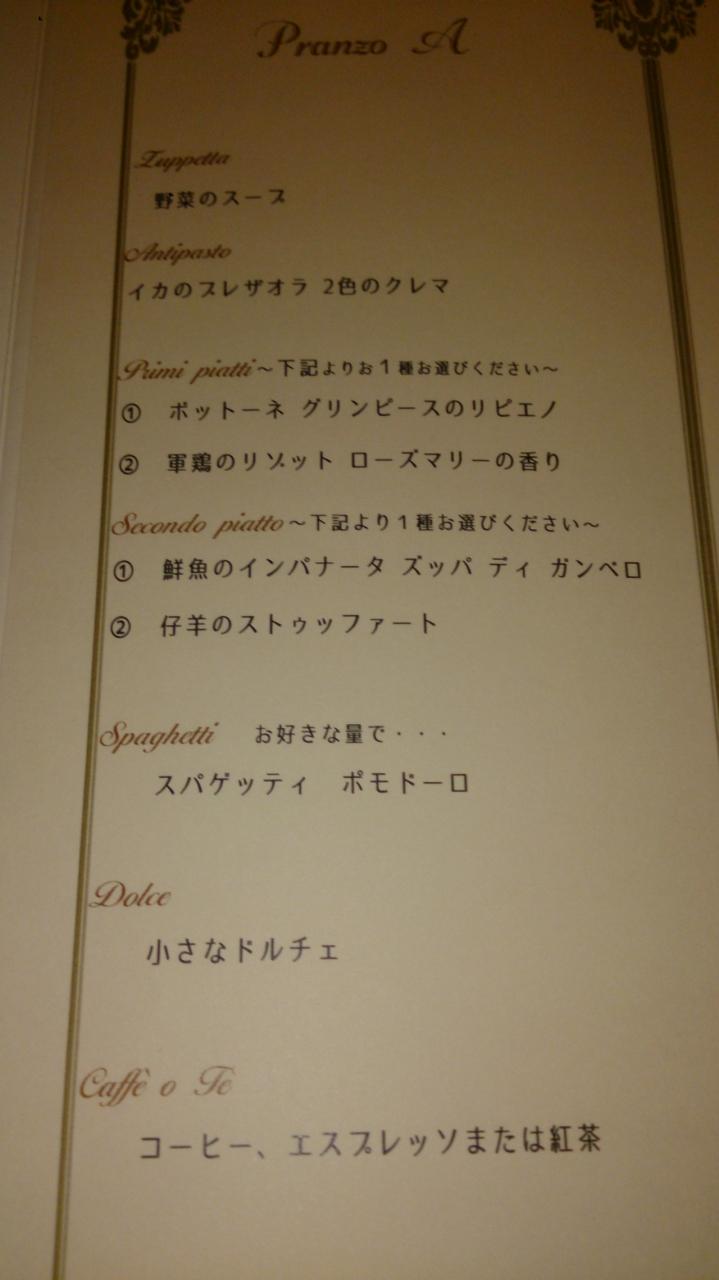 Pranzo A
Zuppetta
野菜のスープ
Antipasto
イカのブレザオラ 2色のクレマ
Primi piatti～下記よりお１種お選びください～
① ボットーネ グリンピースのリピエノ
② 軍鶏のリゾット ローズマリーの香り
Secondo piatto～下記より１種お選びください～
① 鮮魚のインパナータ ズッパ ディ ガンベロ
② 仔羊のストゥッファート
Spaghetti お好きな量で・・・
スパゲッティ ポモドーロ
Dolce
小さなドルチェ
Caffè o Tè
コーヒー、エスプレッソまたは紅茶